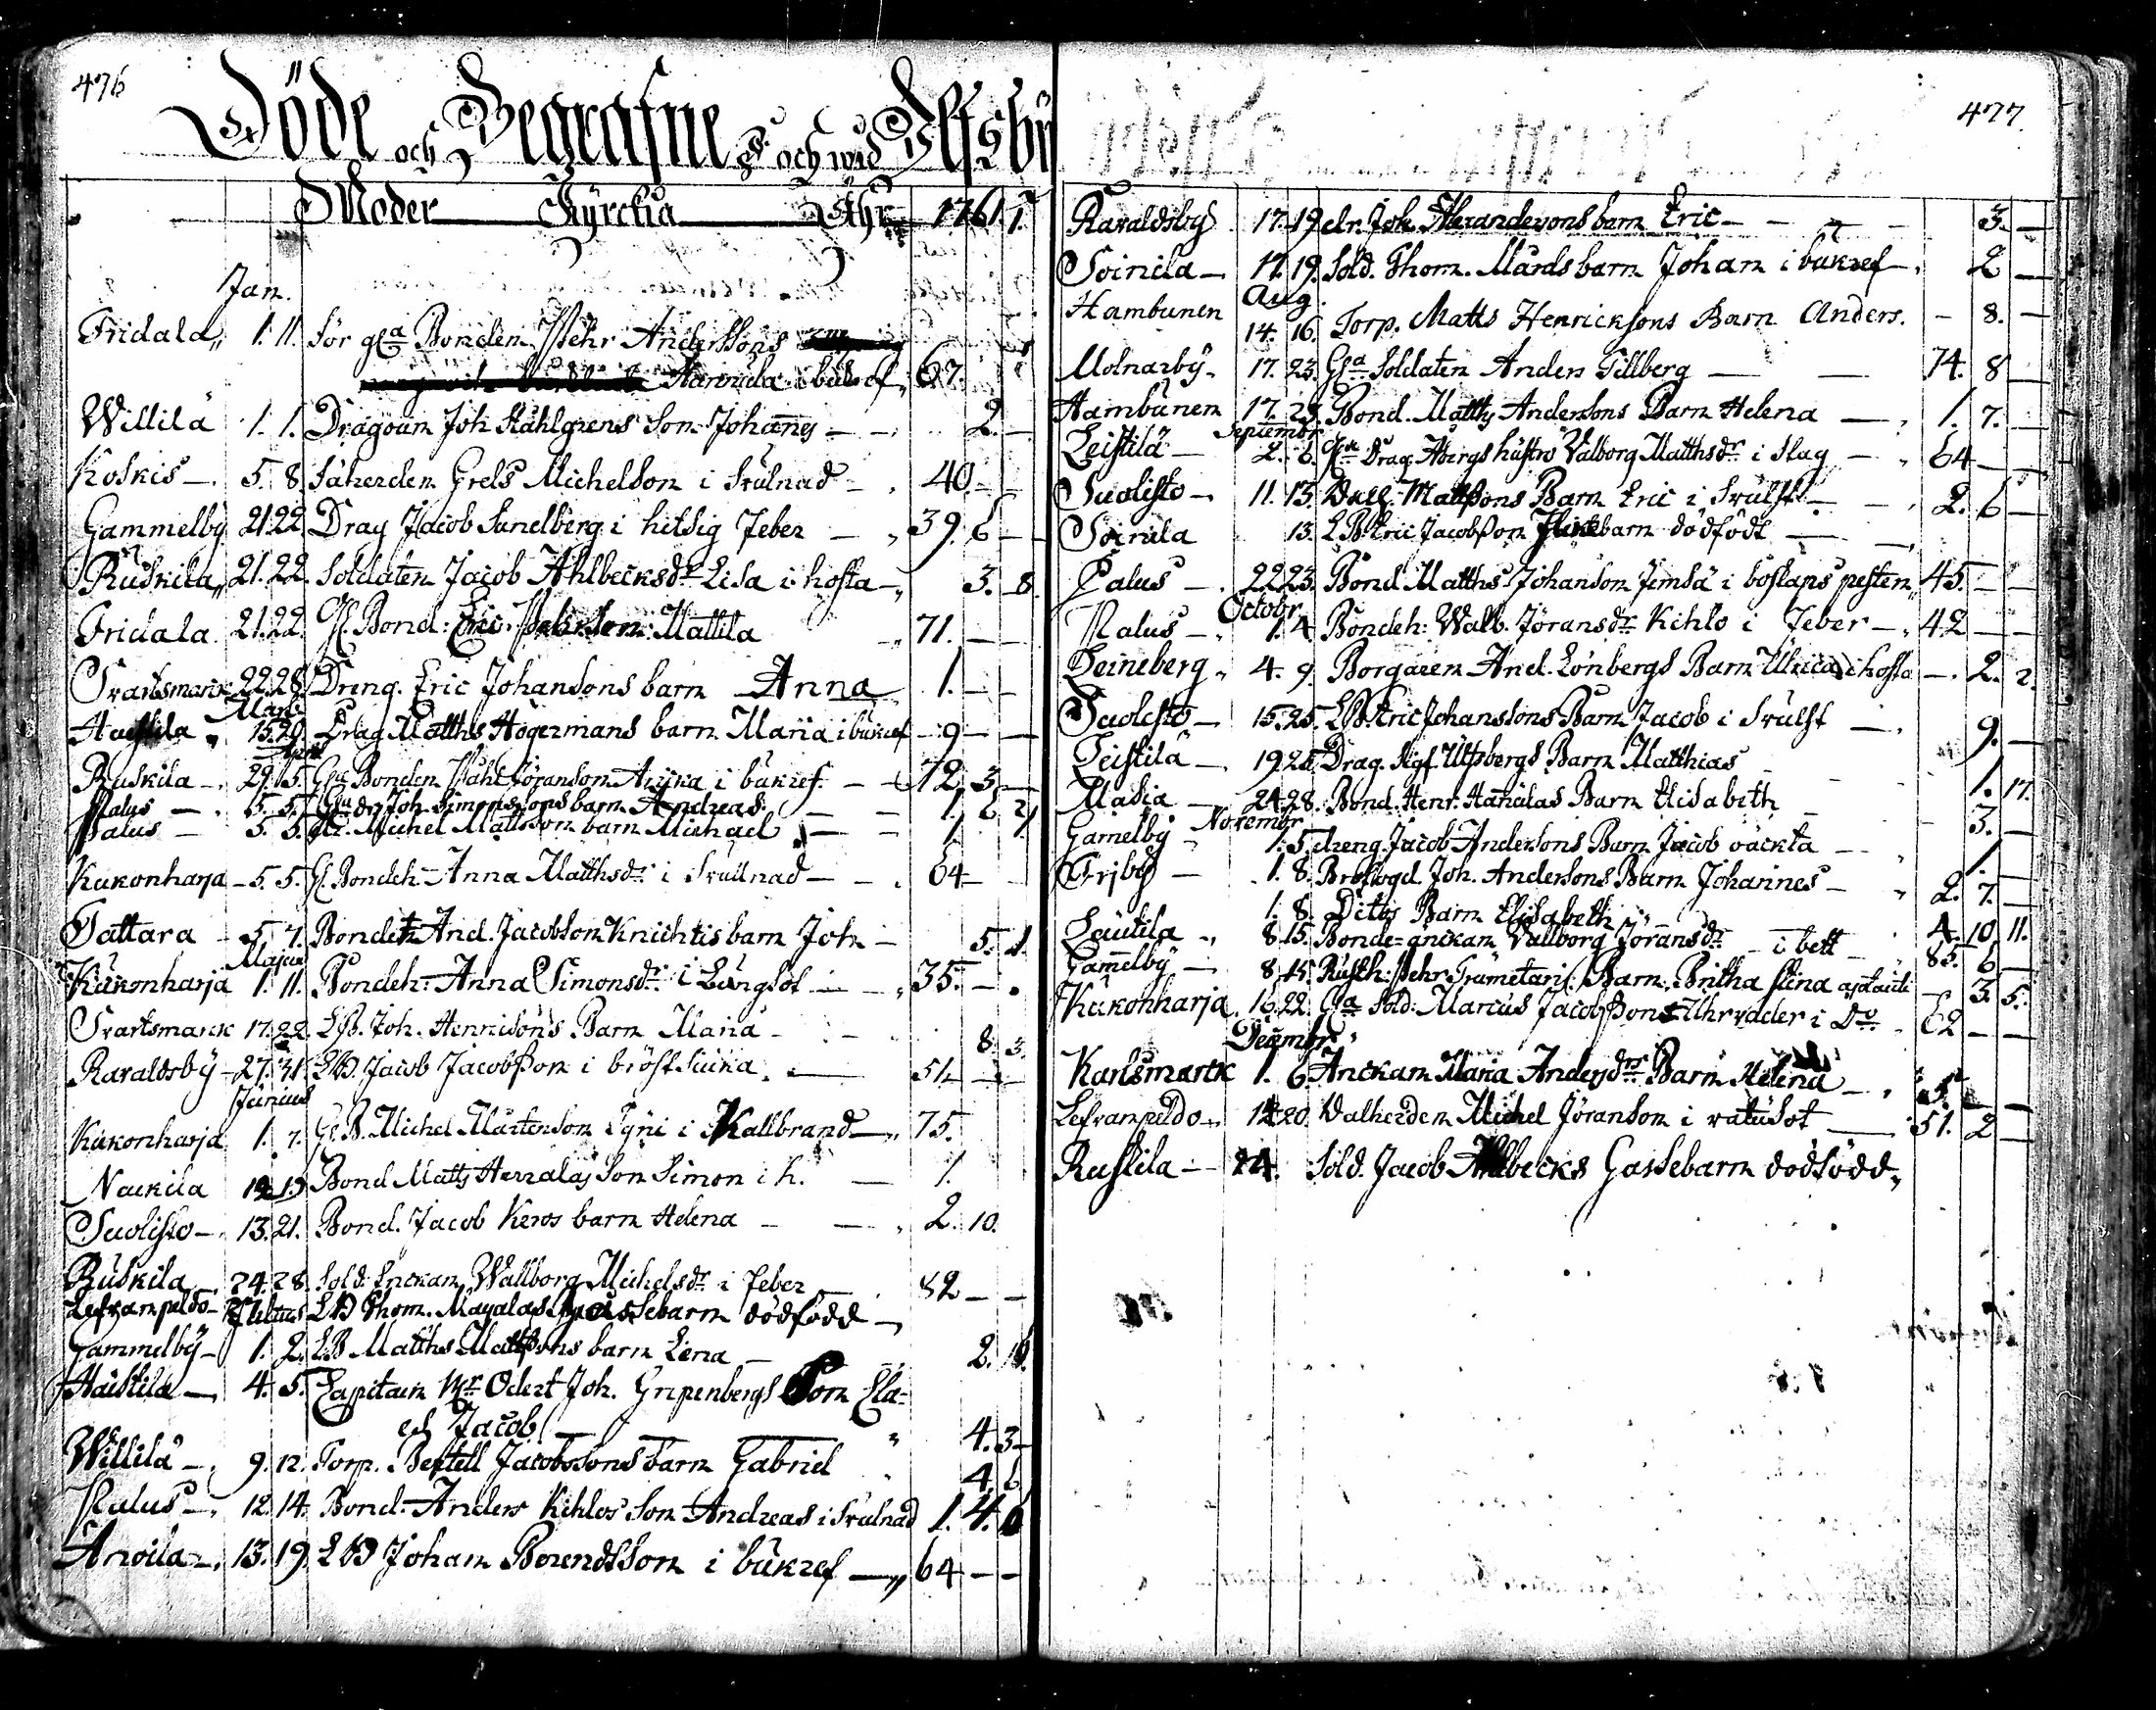 476
Döde och Begrafne i och wid Ulfsby
Moder Kyrckia Åhr 1761.
Jan.
Fridala 1. 11. för gla Bonden Pehr Anderssons
Hannula i bukref 67.
Willilä 1. 1. Dragoun Joh Stählgrens Son Johannes 2.
Koskis 5. 8. Fäherden Grels Michelsom i Svulnad 40.
Gammelby 21. 22. Drag Jacob Sundberg i hitsig Feber 39. 6
Ruskila 21. 22. Soldaten Jacob Ahlbecks dr Lisa i hosta 3. 8.
Fridala 21. 22. Gl. Bond: Eric Mattila 71.
Svartsmarck 22. 28. Dreng. Eric Johansons barn Anna 1.
Mart.
Haistila 15. 29. Drag Matths Högermans barn Maria i bukref 9
Ruskila 29. 5. Gla Bonden Påhl Jöransom i bukref. 72. 3
Palus 5. 5. Joh. Simonssons barn Andreas 1. 6 21
Palus 5. 5. Michel Mattsson barn Michael 1
Kukonharja 5. 5. Gl. Bondeh. Anna Matthsdr i Svullnad 64
Tattara 5. 7. Bonden And. Jacobsom Knichtis barn Joh 5. 1.
Majus
Kukonharja 1. 11. Bondeh: Anna Simonsdr i Lungsot 35.
Svartsmarck 17. 22. LB. Joh. Henrisons Barn Maria 8. 3.
Ravaldsby 27. 31. LB. Jacob Jacobsson i bröstsiuka 51
Junius
Kukonharja 1. 7. Gl. B. Michel Mårtensom i Kallbrand 75.
Nackila 19. Bond Matts Herralas Son Simon i h. 1.
Suolisto 13. 21. Bond. Jacob Keros barn Helena 2. 10.
Ruskila 24. 28. Sold: Enckan Wallborg Michelsdr i Feber 82
Lefvanpeldo Julius LB Thom. Mayalas Gossebarn dödfödd
Gammelby 1. 2. LB Matths Mattssons barn Lena 2.
Haistila 4. 5. Capitain Mr Odert Joh. Gripenbergs Son Cla=
es Jacob 4. 3
Willilä 9. 12. Torp. Bertell Jacobssons barn Gabriel 4. 6
Palus 12. 14. Bond: Anders Kihlos Son Andreas i Svulnad 1. 4.
Anoila 13. 19. LB Johan Berendtsom i bukref 64
477.
Ravaldsby 17. 19. dr. Joh. Alexandersons barn Eric 3.
Soinila 17. 19. Sold. Thom. Mårds barn Johan i bukref 2
Aug.
Hambunen 14. 16. Torp. Matts Henricksons Barn Anders. 8.
Molnarby 17. 23. Gla Soldaten Anders Tillberg 74. 8
Hambunen 17. 23. Bond. Matths Andersons Barn Helena 1. 7.
Septembr
Leistilä 2. 6. Gla Drag. Abergs hustro Valborg Matthsdr i Slag 64
Suolisto 11. 13. Mattsons Barn Eric i Svulst 2. 6
Soinila 13. LB Eric Jacobsson barn dödfödt
Palus 22. 23. Bond Matths Johansom i boskaps pesten 45.
Octobr
Palus 1. 4 Bondeh: Walb. Jöransdr Kihlo i Feber 42
Deineberg 4. 9. Borgaren And. Lönbergs Barn Ulrica i hosta 2. 2.
Suolisto 15. 25. LB. Eric Johanssons Barn Jacob i Svulst 9.
Leistilä 19. 25. Drag. Barn Matthias 1. 17.
Masia 24. 28. Bond. Henr. Hannulas Barn Elisabeth 3.
Novembr
Gamelby 1. 5. dreng. Jacob Andersons Barn Jacob 1.
Frjby 1. 8. Joh. Andersons Barn Johannes 2. 7.
1. 8. Ditos Barn Elisabeth 4. 10 11.
Leutila 8. 15. Bonde=änckan Wallborg Jöransdr i bett 85. 6
Gamelby 8. 15. Rusth: Pehr Grametaris Barn Britha Stina 3. 5.
Kukonharja 16. 22. Gla Sold: Marcus Jacobsson i Do 62
Decembr
Karlsmarck 1. 6. Anckan Maria Andersdrs Barn Helena
Lefvanpeldo 14. 20. Valherden Michel Jöransom i vatusot 51. 2
Ruskila 24. Sold. Jacob Ahlbecks Gossebarn dödfödd